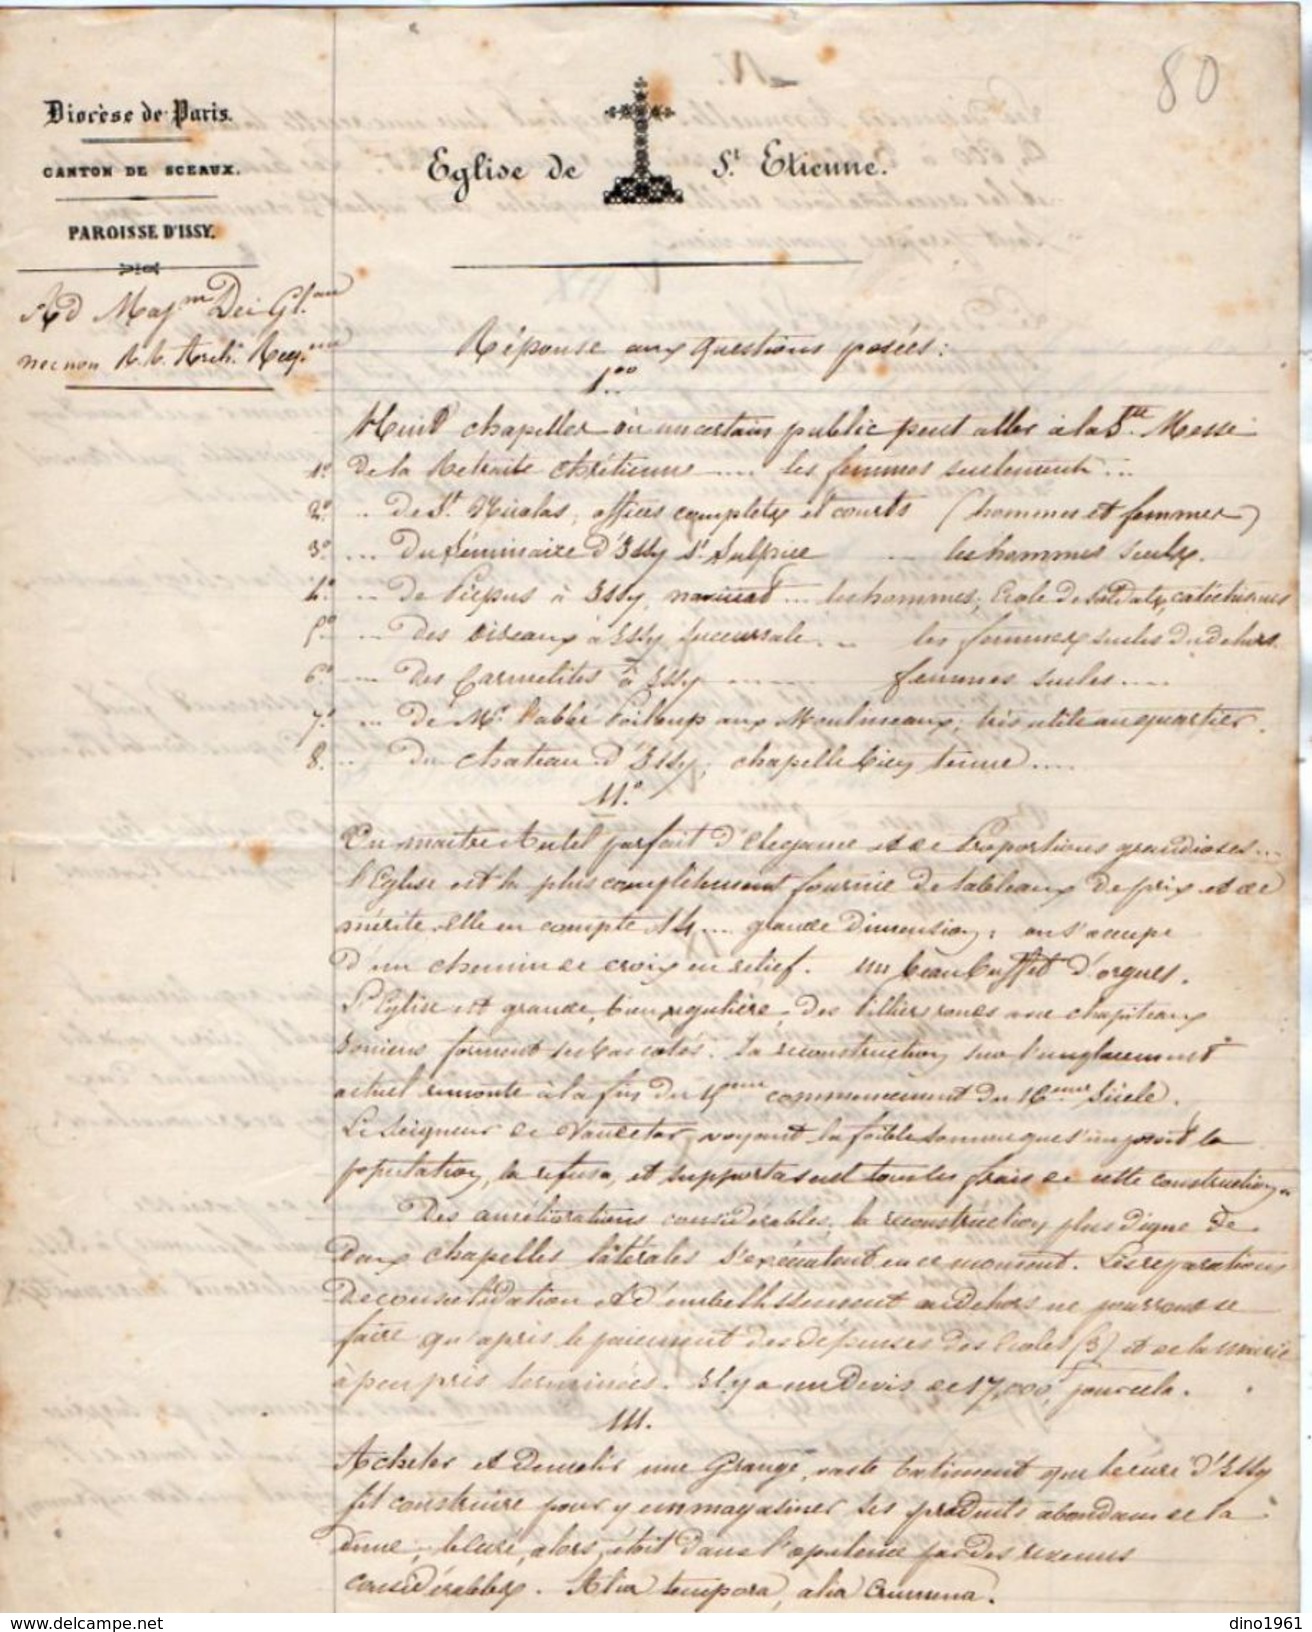 80
Diocèse de Paris.
CANTON DE SCEAUX.
PAROISSE D'ISSY.
Eglise de St. Etienne.
Ad Maj.em Dei Gl.am
nec non Arch. Reg.
Réponse aux questions posées:
1.°
Huit chapelles où un certain public peut aller à la Ste. Messe
1° De la Retraite chrétienne .... les femmes seulement ...
2° .. de St. Nicolas, offices complets et courts (hommes et femmes)
3° ... Du Séminaire d'Issy St. Sulpice .. les hommes seuls.
4° .. de Picpus à Issy, noviciat ... les hommes, Ecole de Soldats, catéchismes
5° .. des Oiseaux à Issy succursale .. les femmes seules du dehors
6° ... des Carmelites à Issy ...... femmes seules ....
7° .. de Mr. l'abbé Poiloup aux Moulineaux, très utile au quartier.
8. .. du chateau d'Issy, chapelle bien tenue ....
11.°
Un maitre Autel parfait d'élégance et de Proportions grandioses ...
l'Eglise est la plus complètement fournie de tableaux de prix et de
mérite, elle en compte 14 .... grande dimension; on s'occupe
d'un chemin de croix en relief. un beau buffet d'orgues.
l'Eglise est grande, bien régulière, des Pilliers ronds avec chapiteaux
Ioniens forment ses bas cotés. la reconstruction sur l'emplacement
actuel remonte à la fin du 15eme commencement du 16eme Siècle.
Le Seigneur de Vaudetar, voyant la faible somme que s'imposait la
population, la refusa, et supporta seul tous les frais de cette construction.
Des améliorations considérables, la reconstruction plus digne de
deux chapelles latérales s'exécutent en ce moment. Les reparations
de consolidation et d'embellissement au dehors ne pourront se
faire qu'après le paiement des dépenses des Ecoles (3) et de la Mairie
à peu près terminées. Il y a un Devis de 17,000f pour cela.
111.
Acheter et Demolir une Grange, vaste batiment que le curé d'Issy
fit construire pour y emmagasiner les produits abondans de la
dime; le curé, alors, était dans l'opulence par des revenus
considérables. Alia tempora, alia crumena.
dino1961